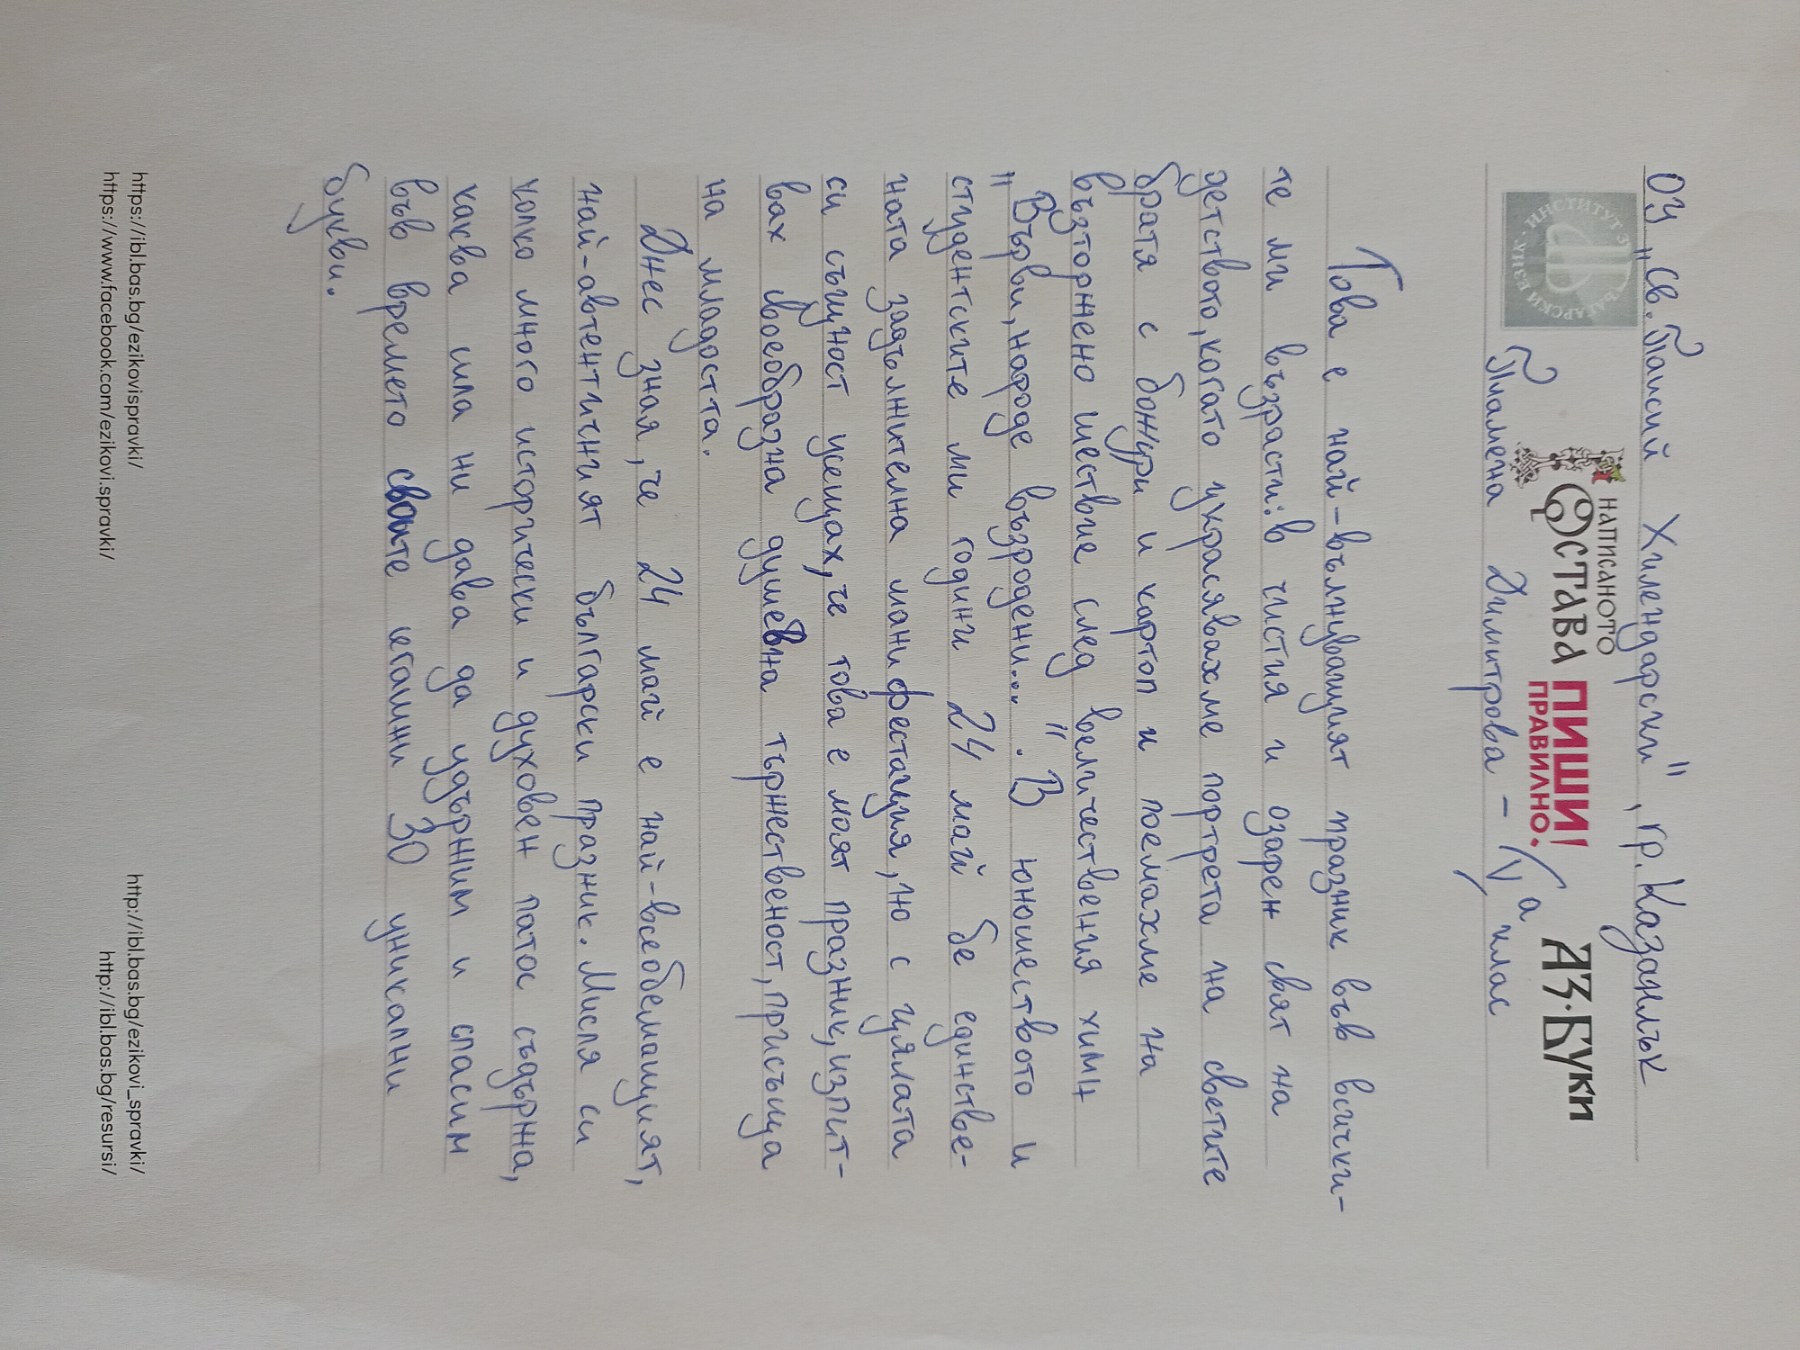 ОУ „Св. Паисий Хилендарски", гр. Казанлък
ИНСТИТУТ ЗА БЪЛГАРСКИ ЕЗИК
НАПИСАНОТО
ОСТАВА
ПИШИ
ПРАВИЛНО.
АЗ·БУКИ
Пламена Димитрова - IVа клас
Това е най-вълнуващият празник във всички-
те ми възрасти: в чистия и озарен свят на
детството, когато украсявахме портрета на светите
братя с божури и картоп и поемахме на
възторжено шествие след величествения химн
„Върви, народе възродени...". В юношеството и
студентските ми години 24 май бе единстве-
ната задължителна манифестация, но с цялата
си същност усещах, че това е моят празник, изпит-
вах своеобразна душевна тържественост, присъща
на младостта.
Днес зная, че 24 май е най-всеобемащият,
най-автентичният български празник. Мисля си
колко много исторически и духовен патос съдържа,
каква сила ни дава да удържим и спасим
във времето своите негови 30 уникални
букви.
https://ibl.bas.bg/ezikovispravki/
https://www.facebook.com/ezikovi.spravki/
http://ibl.bas.bg/ezikovi_spravki/
http://ibl.bas.bg/resursi/